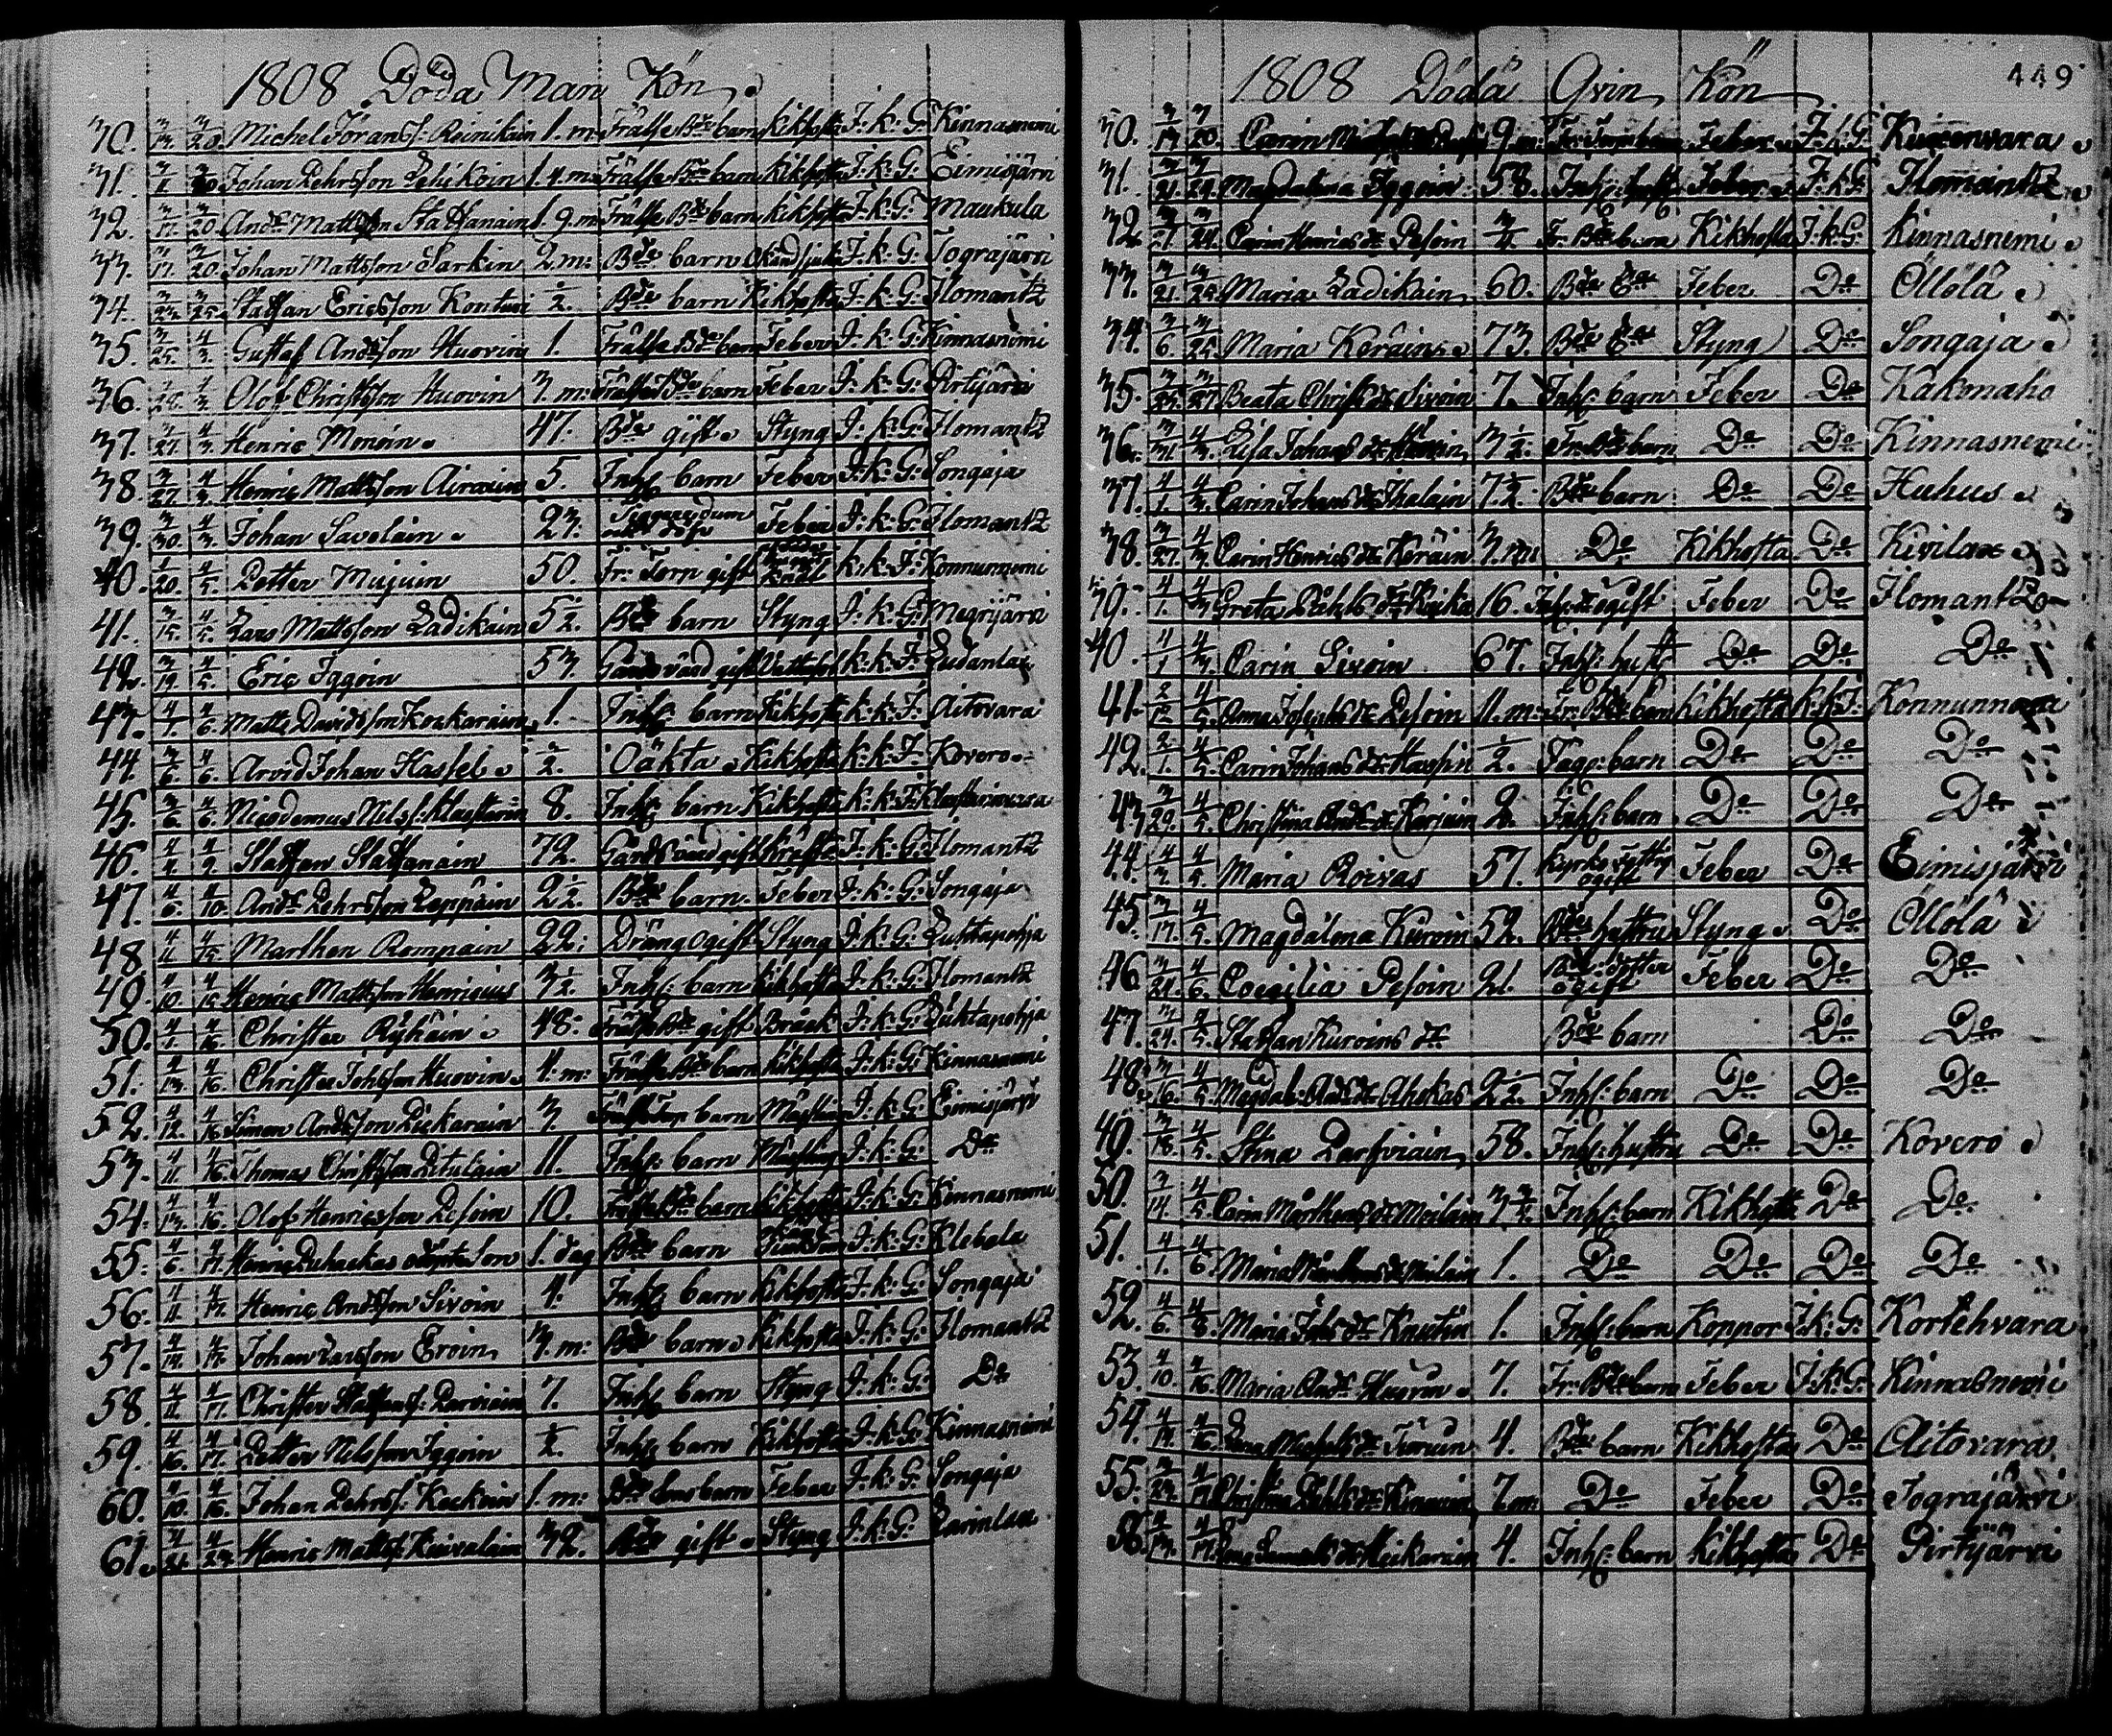 1808 Döda Man Kön
30. 3/13. 3/20. Michel Joranss: Roinikain 1. m: Frälse Bde barn kikhosta I: k: G: Kinnasnemi
31. Johan Pehrsson 1. 4. m: Frälse Bde barn kikhosta I: k: G: Eimisjärvi
32. 3/17. 3/20. Ands Mattsson Staffanain 1. 9. m: Frälse Bde barn kikhosta I: k: G: Maukula
33. 3/17. 3/20. Johan Mattsson Larkin 2. m: Bde barn Okänd sjukd I: k: G: Tograjärvi
34. 3/23. 3/25. Staffan Ericsson Konturi 1/2. Bde barn Kikhosta I: k: G: Ilomantz
35. 3/25. 4/3. Gustaf Andsson Huovin 1. Frälse Bde barn Feber I: k: G: Kinnasnemi
36. 4/3. Olof Christsson Huovin 3. m: Frälse Bde barn Feber I: k: G: Pirtijärvi
37. 3/27. 4/3. Henric Monoin 47. Bde gift Styng I: k: G: Ilomantz
38. 3/27. 4/3. Henric Mattsson Airaxin 5. Inhs: barn Feber I: k: G: Songaja
39. 3/30. 4/3. Johan Savolain 23. Feber I: k: G: Ilomantz
40. 1/20. 4/5. Petter Mujuin 50. Fr: Torp gift k: k: I: Konnunnemi
41. 3/15. 4/5. Lars Mattsson Ladikain 5 1/2. Bde barn Styng I: k: G: Megrijärvi
42. 3/19. 4/5. Eric Iggoin 53. gift k: k: I:
43. 4/1. 4/6. Matts Davidsson Koskarain 1. Inhs: barn Kikhosta k: k: I: Aitovara
44. 3/6. 4/6. Arvid Johan Hassel 1/2. Oäkta Kikhosta k: k: I: Kovero
45. 3/6. 4/6. Nicodemus Nilss: 8. Inhs: barn Kikhosta k: k: I:
46. 4/4. 4/9. Staffan Staffanain 72. gift I: k: G: Ilomantz
47. 4/6. 4/10. Ands Pehrsson Leppäin 2 1/2. Bde barn Feber I: k: G: Songaja
48. 4/11. 4/15. Marthen Rompain 22. Dräng ogift Styng I: k: G: Luhtapohja
49. 4/10. 4/16. Henric Mattsson Henricius 3 1/2. Inhs: barn kikhosta I: k: G: Ilomantz
50. 4/1. 4/16. Christer Rÿkäin 48: Frälse Bde gift Bråck I: k: G: Luhtapohja
51. 4/13. 4/16. Christer Johsson Huovin 4. m: Frälse Bde barn kikhosta I: k: G: Kinnasnemi
52. 4/12. 4/16. Simon Andsson 3. barn Mässling I: k: G: Eimisjärvi
53. 4/11. 4/16. Thomas Christsson Pitulain 11. Inhs: barn Mässling I: k: G: Do
54. 4/13. 4/16. Olof Henricsson Pesoin 10. Frälse Bde barn kikhosta I: k: G: Kinnasnemi
55. 4/6. 4/17. Henric odöpte Son 1. dag Bde barn I: k: G: Klebola
56. 4/11. 4/17. Henric Andsson Sivoin 4. Inhs: barn Kikhosta I: k: G: Songaja
57. 4/14. 4/17. Johan Larsson Eroin 3. m: Bde barn Kikhosta I: k: G: Ilomantz
58. 4/11. 4/17. Christer Staffanss: Parviain 7. Inhs: barn Styng I: k: G: Do
59. 4/16. 4/17. Petter Nilsson Iggoin 1/2. Inhs: barn Kikhosta I: k: G: Kinnasnemi
60. 4/10. 4/16. Johan Pehrss: Kockoin 1. m: barn Feber I: k: G: Songaja
61. 4/21. 4/23. Henric Matts: Kinvalain 32. Bde gift Styng I: k: G:
449
1808 Döda Qvin Kön
30. 3/17. 3/20. Carin 9. m: Feber I: k: G: Kuuxenvara
31. 3/21. 3/24. Magdalena Iggoin 58. Inhs: hustr Feber I: k: G: Ilomantz
32. 3/21. 3/24. Carin Henrics dr Pesoin 3/4. Fr: Bde barn Kikhosta I: k: G: Kinnasnemi
33. 3/21. 3/25. Maria Ladikain 60. Bde Ea Feber Do Öllölä
34. 3/6. 3/25. Maria Keräin 73. Bde Ea Styng Do Songaja
35. 3/25. 3/27. Beata Christ: dr Sivoin 7. Inhs: barn Feber Do Kakonaho
36. 3/31. 4/3. Lisa Johans dr Huovin 3 1/2. Fr: Bde barn Do Do Kinnasnemi
37. 4/1. 4/3. Carin Johans dr Ihalain 7 1/2. Bde barn Do Do Huhus
38. 3/27. 4/3. Carin Henrics dr Keräin 3. m Do Kikhosta Do Kivilax
39. 4/1. 4/3. Greta Påhls dr 16. ogift Feber Do Ilomantz
40. 4/1. 4/3. Carin Sivoin 67. Inhs: hustr Do Do Do
41. 2/12. 4/5. Anna Josephs dr Pesoin 11. m: Fr: Bde barn Kikhosta k: k: I: Konnunnemi
42. 2/1. 4/5. Carin Johans dr 1/2. barn Do Do Do
43 3/29. 4/5. Christina Ands dr Karjain 2. Inhs: barn Do Do Do
44. 4/3. 4/5. Maria Roivas 57. ogift Feber Do Eimisjärvi
45. 3/17. 4/5. Magdalena Kuroin 52. Bde hustru Styng Do Öllölä
46 3/24. 4/6. Coecilia Pesoin 21. Bde dotter ogift Feber Do Do
47. 3/24. 4/5. Staffan Kuroins dr Bde barn Do Do
48. 3/16. 4/5. Magdal: Ads dr Ahokas 2 1/2. Inhs: barn Do Do Do
49. 3/18. 4/5. Stina Parfviain 58. Inhs: hustru Do Do Kovero
50. 3/14. 4/5. Carin Mårthens dr Moilain 3 3/4. Inhs: barn Kikhosta Do Do
51. 4/1. 4/6. Maria Mårthens dr Moilain 1. Do Do Do Do
52. 4/6. 4/8. Maria Johs dr Knutin 1. Inhs: barn Koppor I: k: G: Kortehvara
53. 4/10. 4/16. Maria Ands Huovin 7. Fr: Bde barn Feber I: k: G: Kinnasnemi
54. 4/14. 4/16. Michels dr 4. Bde barn Kikhosta Do Aitovara
55. 3/24. 4/17. Christina Påhls dr 7. m: Do Feber Do Tograjärvi
56. 4/13. 4/17. 4. Inhs: barn Kikhosta Do Pirtijärvi